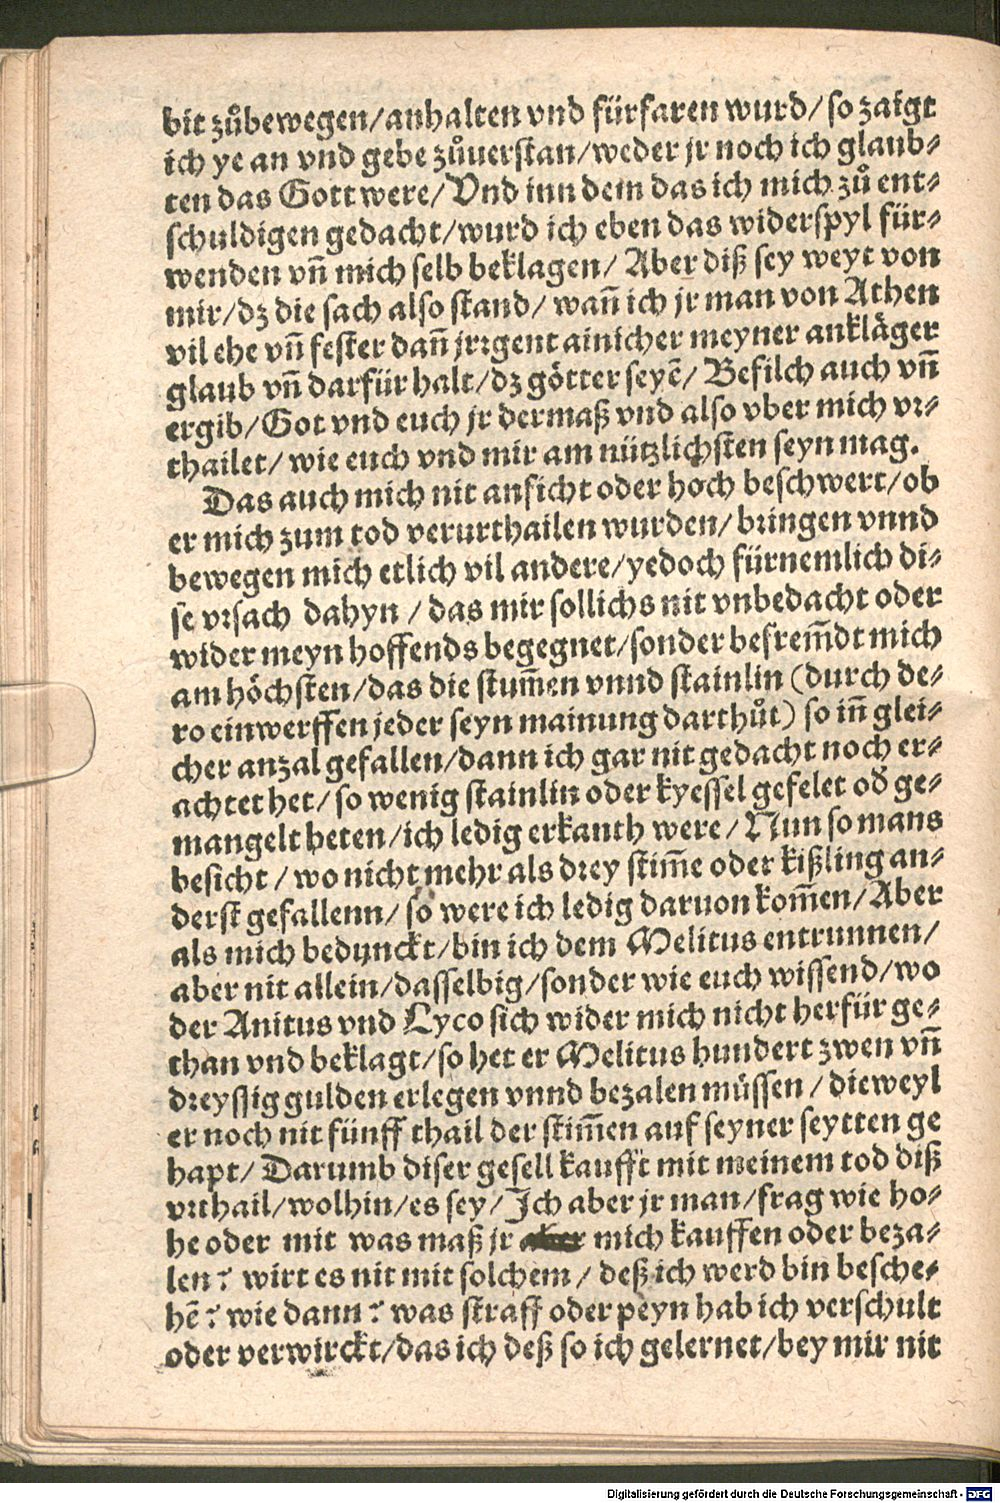 bit zůbewegen/anhalten vnd fürfaren wurd/so zaigt
ich ye an vnd gebe zůuerstan/weder jr noch ich glaub-
ten das Gott were/Vnd inn dem das ich mich zů ent-
schuldigen gedacht/wurd ich eben das widerspyl für-
wenden vñ mich selb beklagen/ Aber diß sey weyt von
mir/dz die sach also stand/ wañ ich jr man von Athen
vil ehe vñ fester dañ jrrgent ainicher meyner ankläger
glaub vñ darfür halt/dz götter seyẽ/ Befilch auch vñ
ergib/Got vnd euch jr dermaß vnd also vber mich vr-
thailet/ wie euch vnd mir am nützlichsten seyn mag.
Das auch mich nit anficht oder hoch beschwert/ob
er mich zum tod verurthailen wurden/ bringen vnnd
bewegen mich etlich vil andere/yedoch fürnemlich di-
se vrsach dahyn / das mir sollichs nit vnbedacht oder
wider meyn hoffends begegnet/sonder befrem̃dt mich
am höchsten/das die stum̃en vnnd stainlin (durch de-
ro einwerffen jeder seyn mainung darthůt) so iñ glei-
cher anzal gefallen/dann ich gar nit gedacht noch er-
achtet het/ so wenig stainlin oder kyessel gefelet od̕ ge-
mangelt heten/ich ledig erkanth were/ Nun so mans
besicht / wo nicht mehr als drey stim̃e oder kißling an-
derst gefallenn/ so were ich ledig daruon kom̃en/Aber
als mich bedunckt/bin ich dem Melitus entrunnen/
aber nit allein/dasselbig/sonder wie euch wissend/wo
der Anitus vnd Lyco sich wider mich nicht herfür ge-
than vnd beklagt/so het er Melitus hundert zwen vñ
dreyssig gulden erlegen vnnd bezalen müssen / dieweyl
er noch nit fünff thail der stim̃en auf seyner seytten ge
hapt/ Darumb diser gesell kaufft mit meinem tod diß
vrthail/wolhin/es sey/ Ich aber jr man/frag wie ho-
he oder mit was maß jr mich kauffen oder beza-
len? wirt es nit mit solchem/ deß ich werd bin besche-
hẽ? wie dann? was straff oder peyn hab ich verschult
oder verwirckt/das ich deß so ich gelernet/bey mir nit
Digitalisierung gefördert durch die Deutsche Forschungsgemeinschaft - DFG